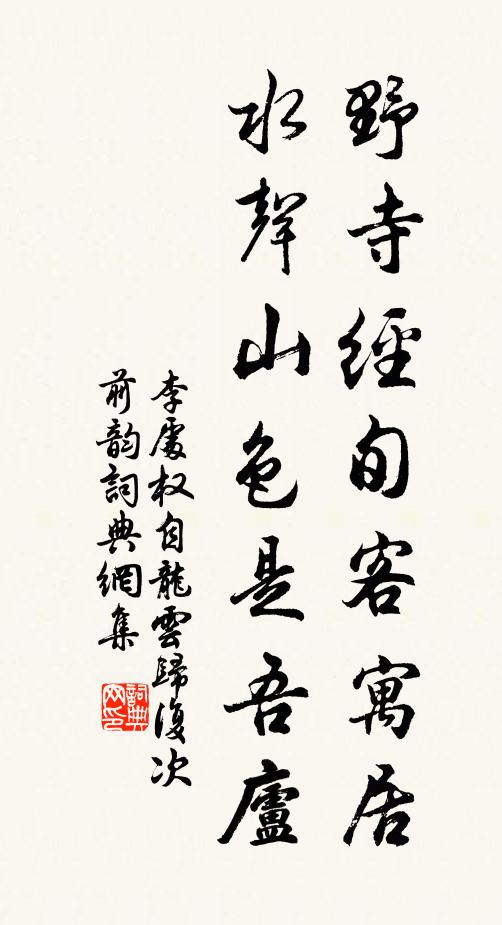 野寺經旬客寓居
水聲山色是吾廬
李處权自龍雲歸復次
前韵詞典網集
詞典网印